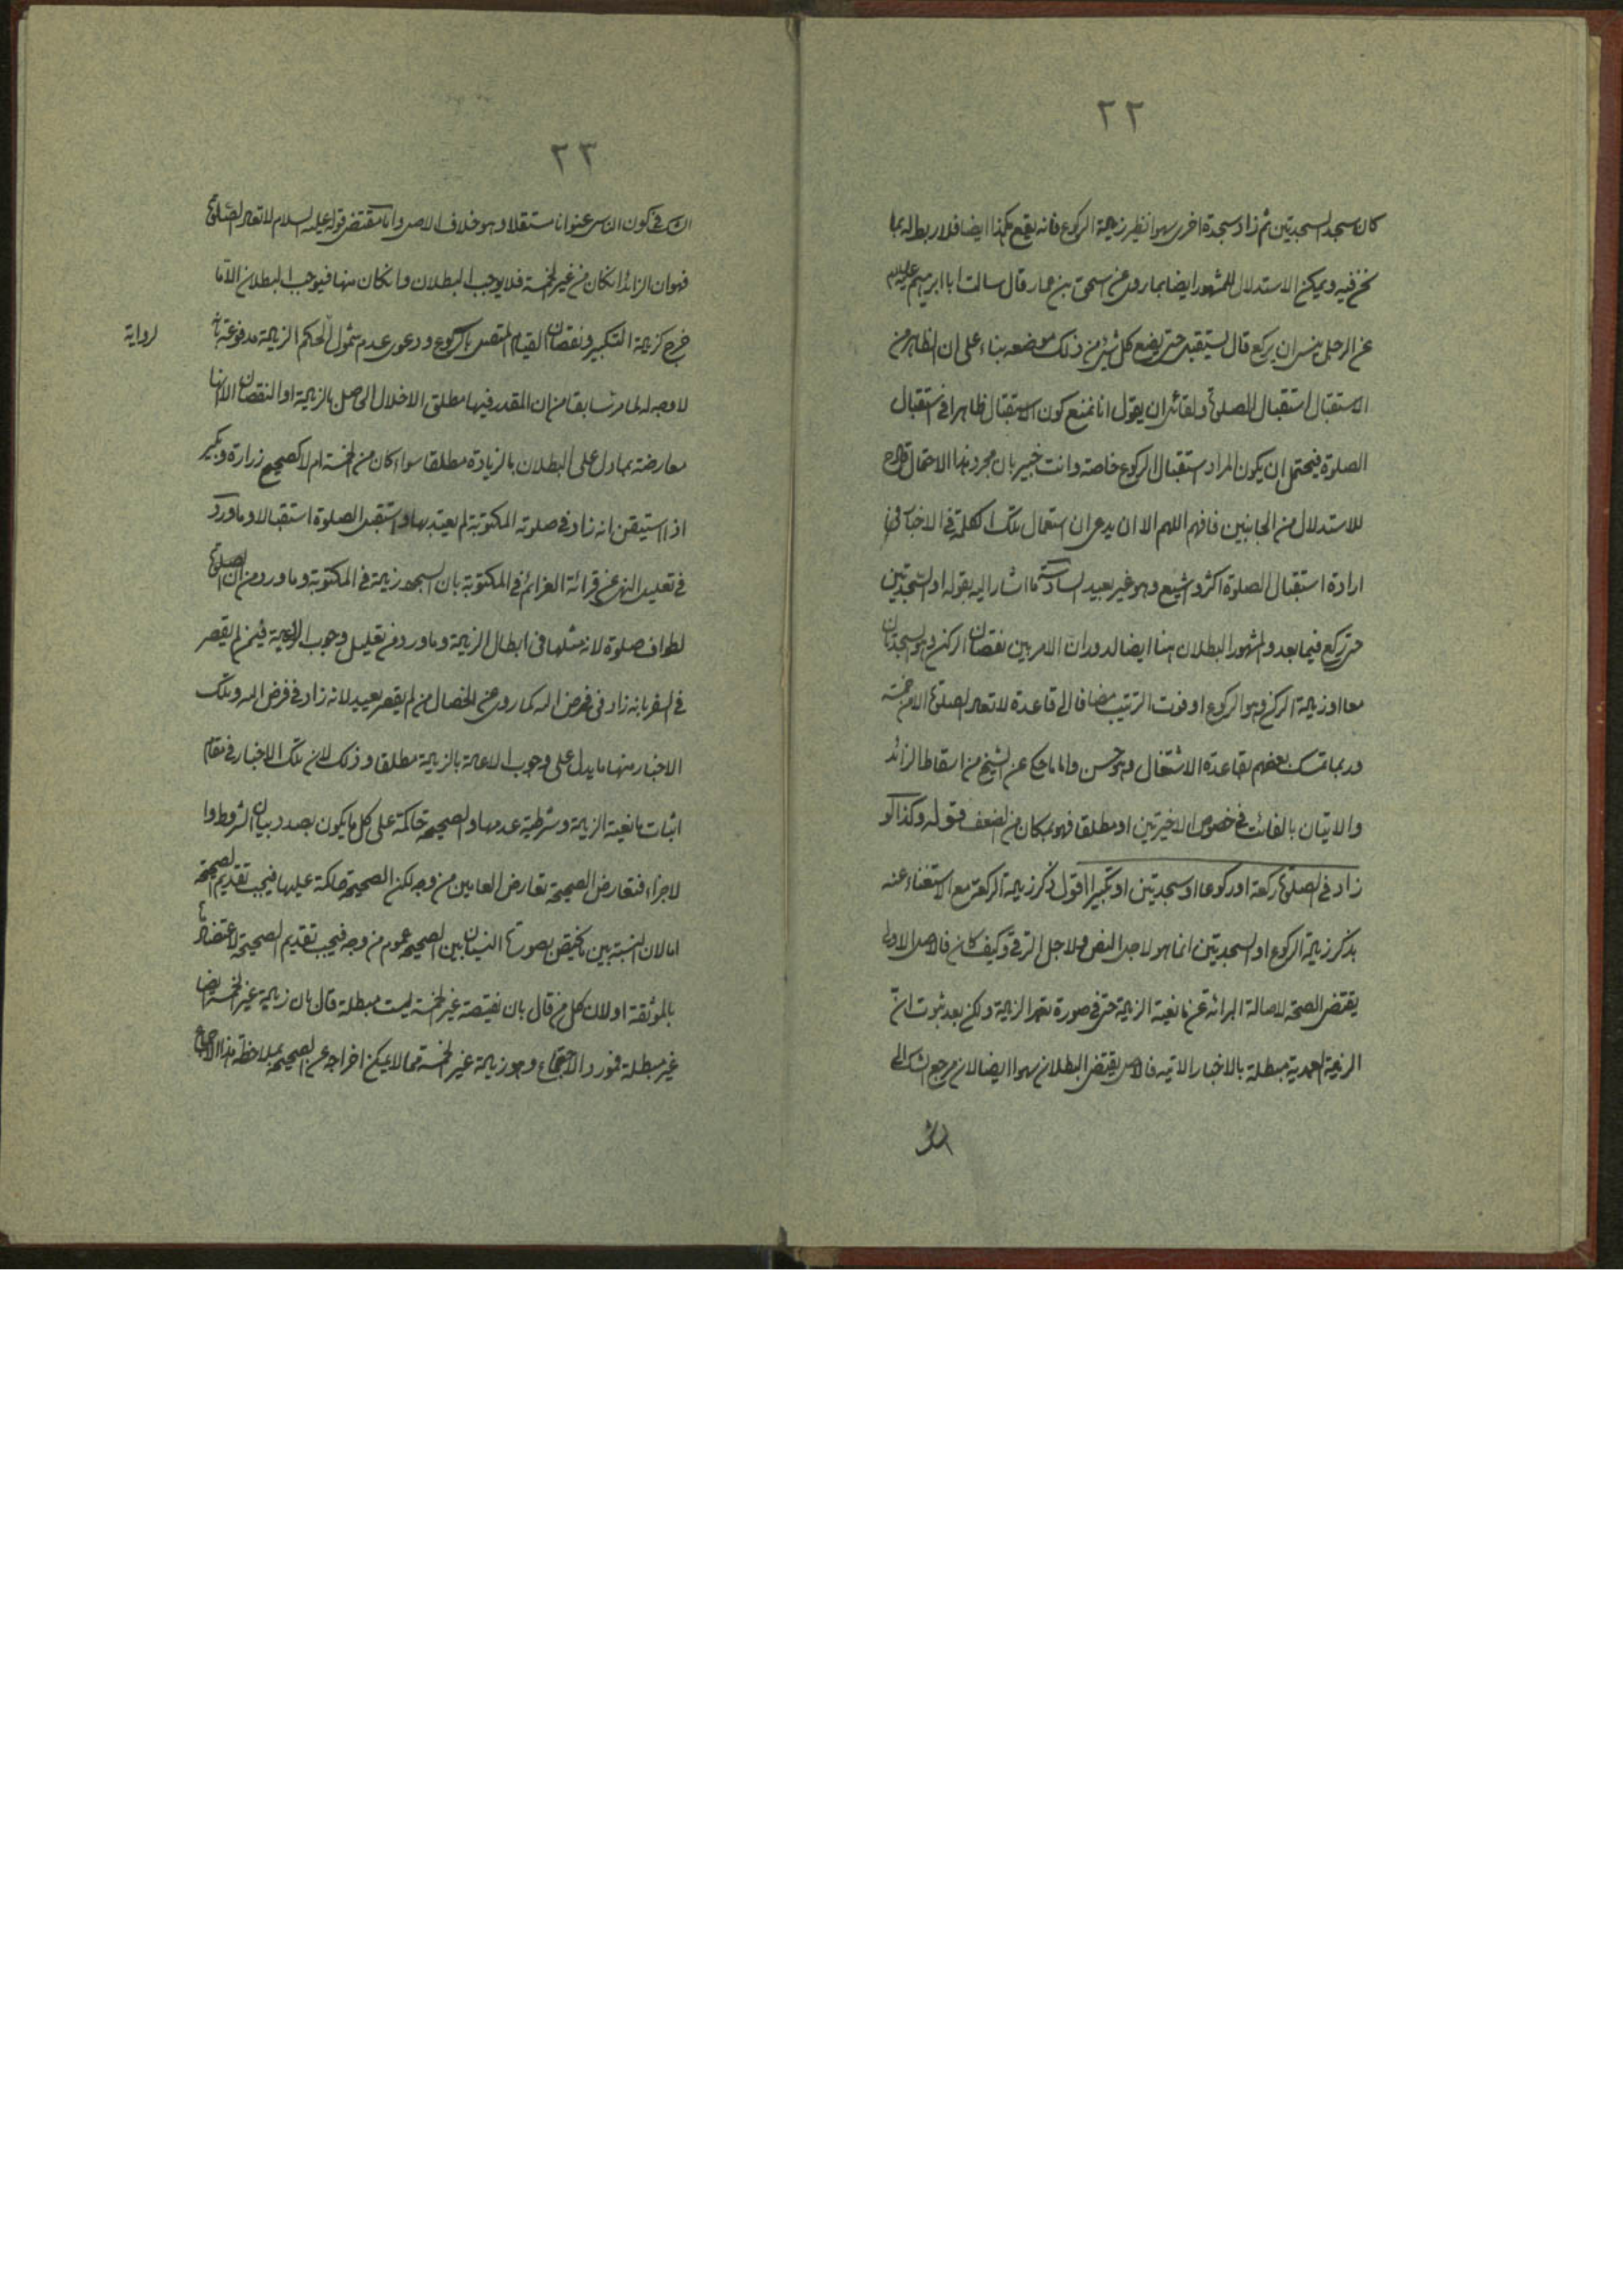 ٢٢
كان سجد السجدتين ثم زاد سجدة اخرى سهوا نظير زيادة الركوع فانه يقع هكذا ايضا فلا ربط له بما
نحن فيه ويمكن الاستدلال للمشهور ايضا بما روى عن اسحق بن عمار قال سالت ابا ابرهيم عليه السلام
عن الرجل ينسى ان يركع قال يستقبل حتى يضع كل شئ من ذلك موضعه بناء على ان الظاهر من
الاستقبال استقبال الصلوة ولقائل ان يقول انا نمنع كون الاستقبال ظاهرا فى استقبال
الصلوة فيحتمل ان يكون المراد استقبال الركوع خاصة وانت خبير بان مجرد هذا الاحتمال قادح
للاستدلال من الجانبين فافهم اللهم الا ان يدعى ان استعمال تلك الكلمة فى الاخبار فى
ارادة استقبال الصلوة اكثر واشيع وهو غير بعيد السادسة ما اشار اليه بقوله او السجدتين
حتى ركع فيما بعد والمشهور البطلان هنا ايضا لدوران الامر بين نقصان الركن وهو السجدتان
معا او زيادة الركن وهو الركوع او فوت الترتيب مضافا الى قاعدة لا تعاد الصلوة الا من خمسة
وربما تمسك بعضهم بقاعدة الاشتغال وهو حسن واما ما حكى عن الشيخ من اسقاط الزائد
والاتيان بالفائت فى خصوص الاخيرتين او مطلقا فهو بمكان من الضعف قوله وكذا لو
زاد فى الصلوة ركعة او ركوعا او سجدتين او تكبيرا اقول ذكر زيادة الركعة مع الاستغناء عنه
بذكر زيادة الركوع او السجدتين انما هو لاجل النص ولاجل الترقى وكيف كان فالاصل الاولى
يقتضى الصحة لاصالة البرائة عن مانعية الزيادة حتى فى صورة تعمد الزيادة ولكن بعد ثبوت ان
الزيادة العمدية مبطلة بالاخبار الاتية فالاصل يقتضى البطلان سهوا ايضا لان مرجع الشك الى
الشك
٢٣
الشك فى كون الناسى عنوانا مستقلا وهو خلاف الاصل واما مقتضى قوله عليه السلام لا تعاد الصلوة
فهو ان الزائد ان كان من غير الخمسة فلا يوجب البطلان وان كان منها فيوجب البطلان الا ما
خرج كزيادة التكبير ونقصان القيام المتصل بالركوع ودعوى عدم شمول الحكم الزيادة مدفوعة بانه
لرواية
لا وجه له لما مر سابقا من ان المقدر فيها مطلق الاخلال الحاصل بالزيادة او النقصان الا انها
معارضة بما دل على البطلان بالزيادة مطلقا سواء كان من الخمسة ام لا كصحيح زرارة وبكير
اذا استيقن انه زاد فى صلوته المكتوبة لم يعتد بها واستقبل الصلوة استقبالا وما ورد
فى تعليل النهى عن قرائة العزائم فى المكتوبة بان السجود زيادة فى المكتوبة وما ورد من ان الصلوة
الطواف صلوة لانه مثلها فى ابطال الزيادة وما ورد من تعليل وجوب الاعادة فيمن لم يقصر
فى السفر بانه زاد فى فرض الله كما روى عن الخصال من لم يقصر يعيد لانه زاد فى فرض الله وتلك
الاخبار منها ما يدل على وجوب الاعادة بالزيادة مطلقا وذلك لان تلك الاخبار فى مقام
اثبات مانعية الزيادة وشرطية عدمها والصحيحة حاكمة على كل ما يكون بصدد بيان الشروط وا
لاجزاء فتعارض الصحيحة تعارض العامين من وجه لكن الصحيحة حاكمة عليها فيجب تقديم الصحيحة
اما لان النسبة بين ما يختص بصورتها النسيان بين الصحيحة عموم من وجه فيجب تقديم الصحيحة لاعتضادها
بالموثقة او لان كل من قال بان نقيصة غير الخمسة ليست مبطلة قال بان زيادة غير الخمسة ايضا
غير مبطلة فمورد الاجتماع وهو زيادة غير الخمسة مما لا يمكن اخراجه عن الصحيحة بملاحظة هذا الاجماع